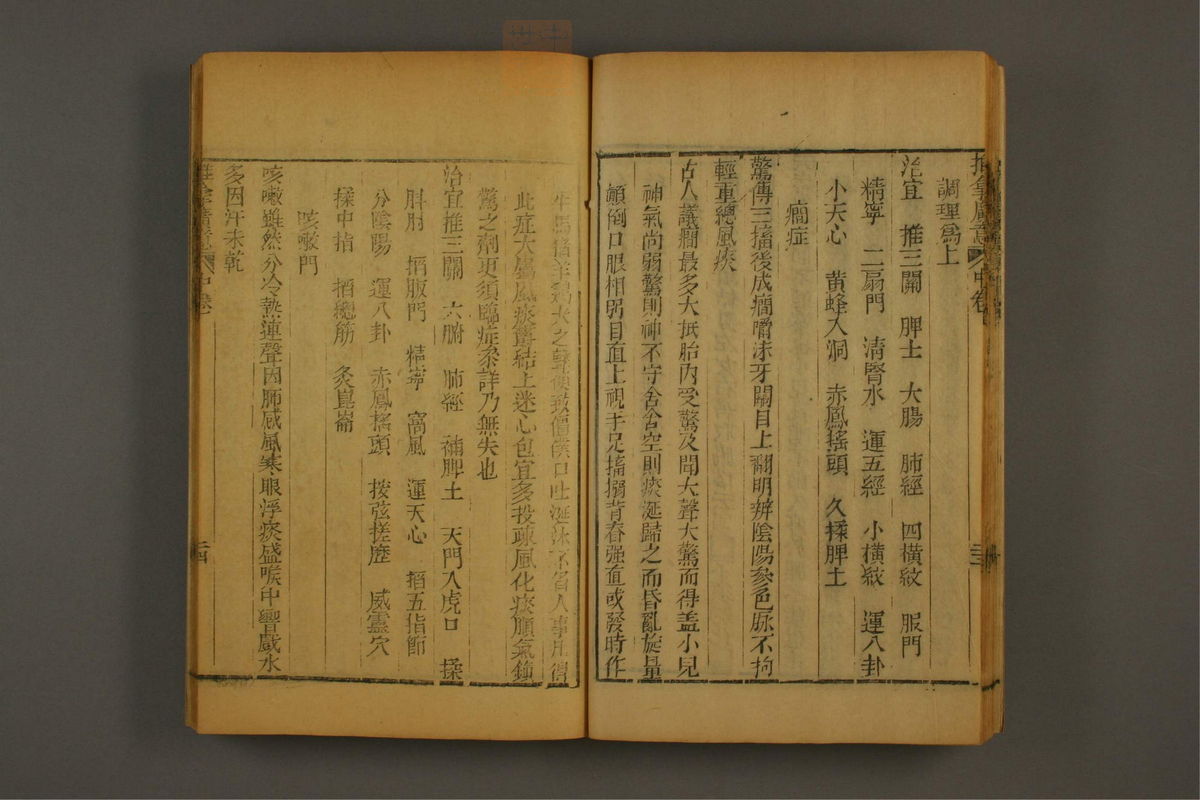 調理爲上
治宜　推三關　脾土　大腸　肺經　四橫紋　服門
精寧　二扇門　清腎水　運五經　小橫紋　運八卦
小天心　黃蜂入洞　赤鳳搖頭　久揉脾土
癎症
驚傳三搐後成癎嚼沫牙關目上翻明辨陰陽參色脉不拘
輕重總風痰
古人議癎最多大抵胎內受驚及聞大聲大驚而得盖小兒
神氣尚弱驚則神不守舍舍空則痰涎歸之而昏亂旋暈
顛倒口眼相弱目直上視手足搐搦背脊强直或發時作
牛馬猪羊鷄犬之聲便致僵僕口吐涎沫不省人事
此症大屬風痰欝結上迷心包宜多投疎風化痰順氣鎮
驚之劑更須臨症參詳乃無失也
治宜推三關　六腑　肺經　補脾土　天門入虎口　揉
肘　掐服門　精寧　窩風　運天心　掐五指節
分陰陽　運八卦　赤鳳搖頭　按弦搓　威靈穴
揉中指　掐總筋　灸崑崙
咳嗽門
咳嗽雖然分冷熱連聲因肺感風寒眼浮痰盛喉中響戲水
多因汗未乾
中卷
二四